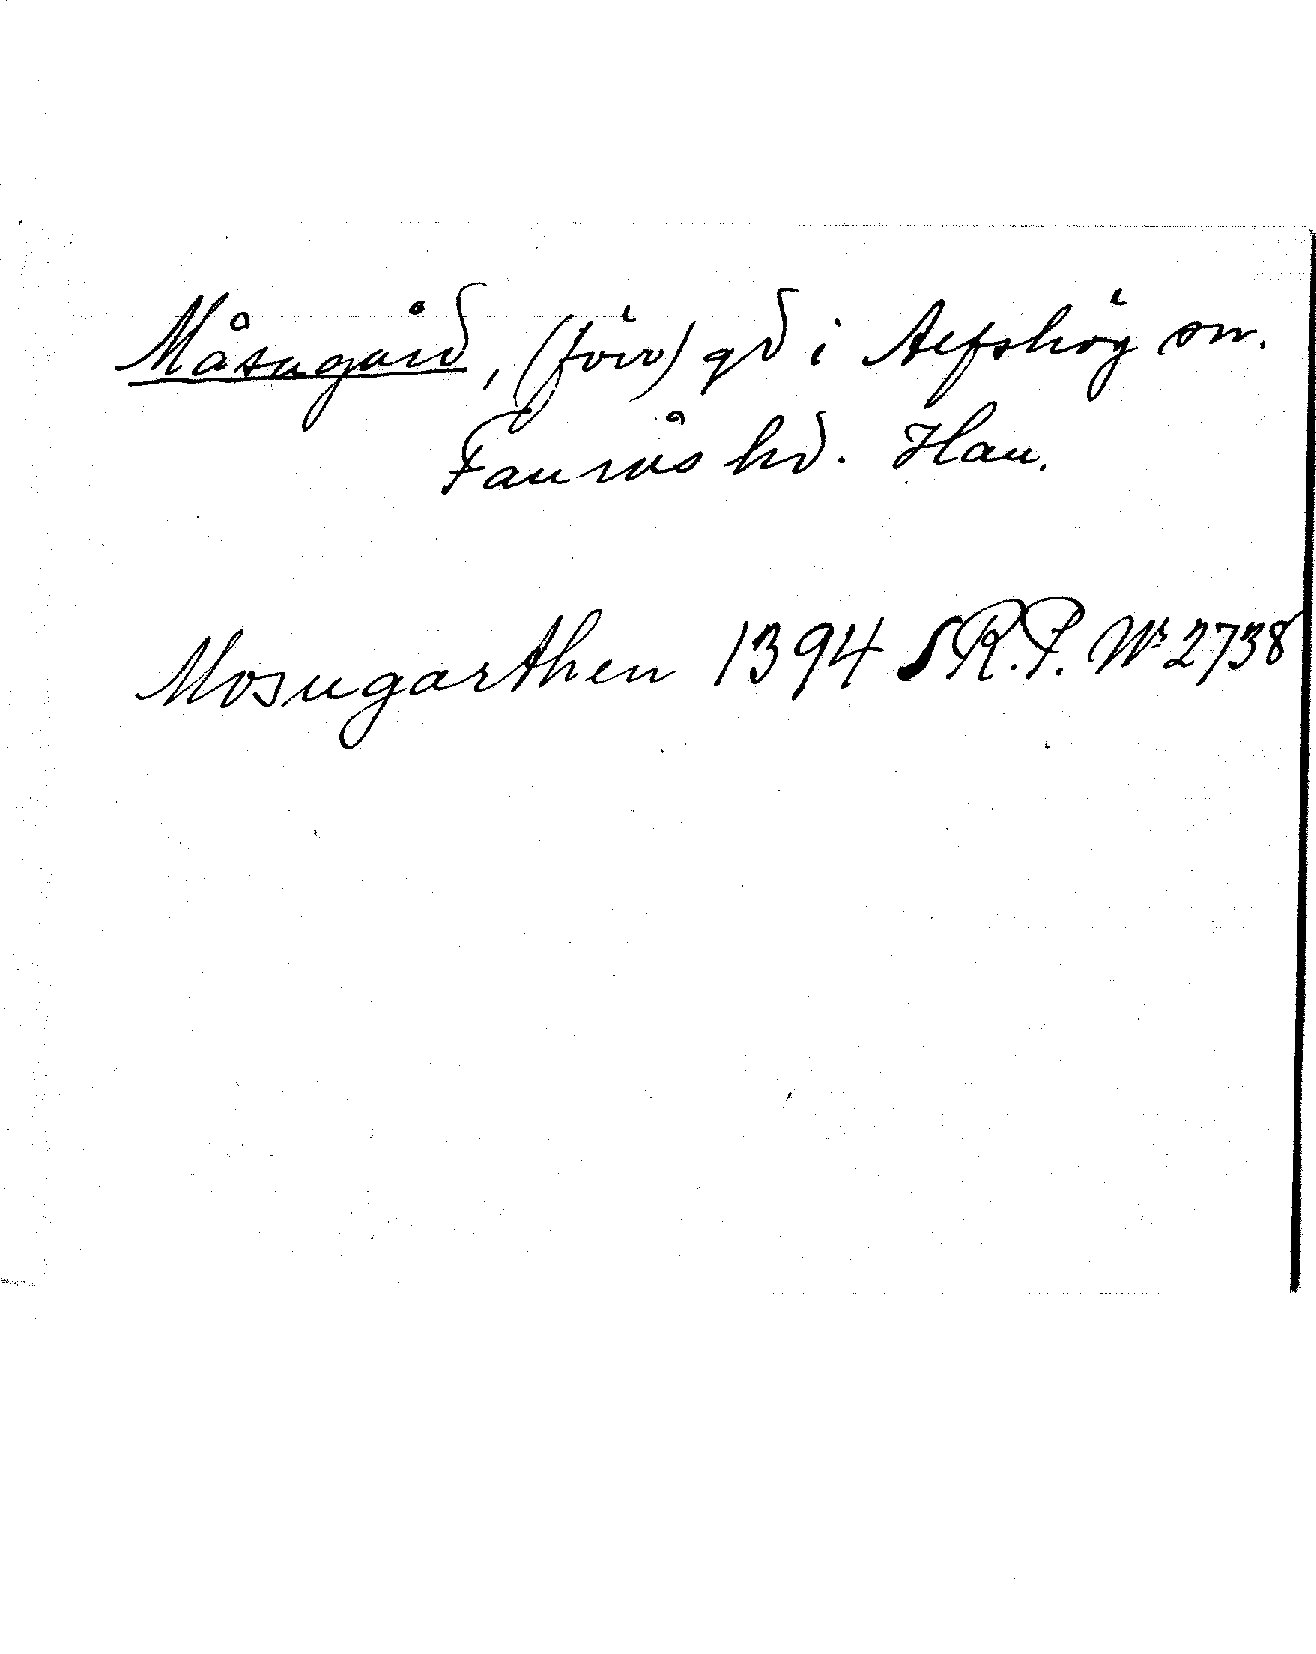 Måsagård, (förv) gd i Alfshög sn.
Faurås hd. Hall.
Mosugarthen 1394 SRP. Nr 2738